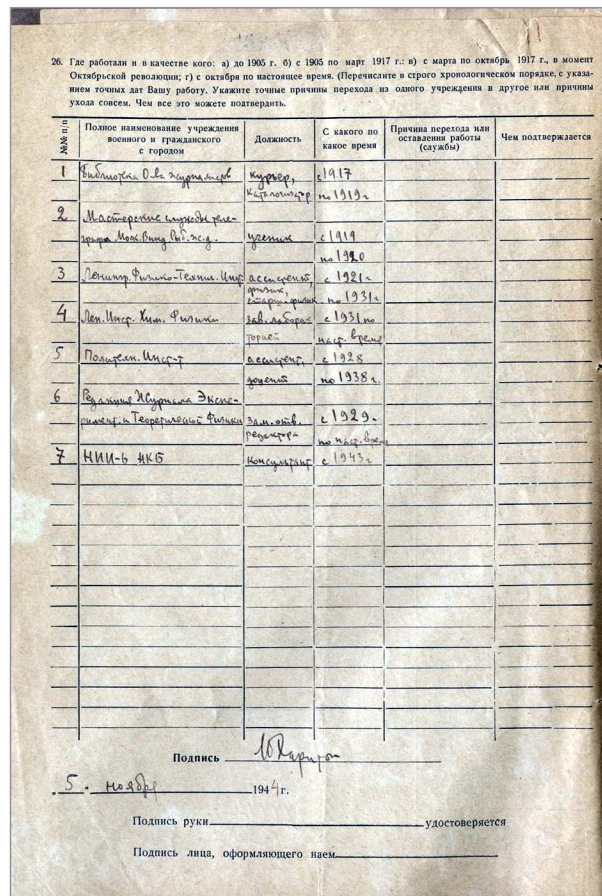 26. Где работали и в качестве кого: а) до 1905 г. б) с 1905 по март 1917 г.: в) с марта по октябрь 1917 г., в момент
Октябрьской революции; г) с октября по настоящее время. (Перечислите в строго хронологическом порядке, с указа-
нием точных дат Вашу работу. Укажите точные причины перехода из одного учреждения в другое или причины
ухода совсем. Чем все это можете подтвердить.
№№ п/п
Полное наименование учреждения
военного и гражданского
с городом
Должность
С какого по
какое время
Причина перехода или
оставления работы
(службы)
Чем подтверждается
1 Библиотека О-ва журналистов курьер, с 1917
каталогизатор по 1919 г
2 Мастерские службы теле-
графа Моск. Винд. Рыб. ж.д. ученик с 1919
по 1920
3 Ленингр. Физико-Технич. Инст. ассистент, с 1921 г.
физик,
старш. физик по 1931 г
4 Лен. Инст. Хим. Физики зав. лабора- с 1931 по
торией наст. время
5 Политехн. Инст-т ассистент, с 1928
доцент по 1938 г.
6 Редакция Журнала Экспе-
римент. и Теоретической Физики зам. отв. с 1929.
редактора по наст. время
7 НИИ-6 НКБ консультант с 1943 г
Подпись Ю Харитон
5 ноября 1944 г.
Подпись руки удостоверяется
Подпись лица, оформляющего наем